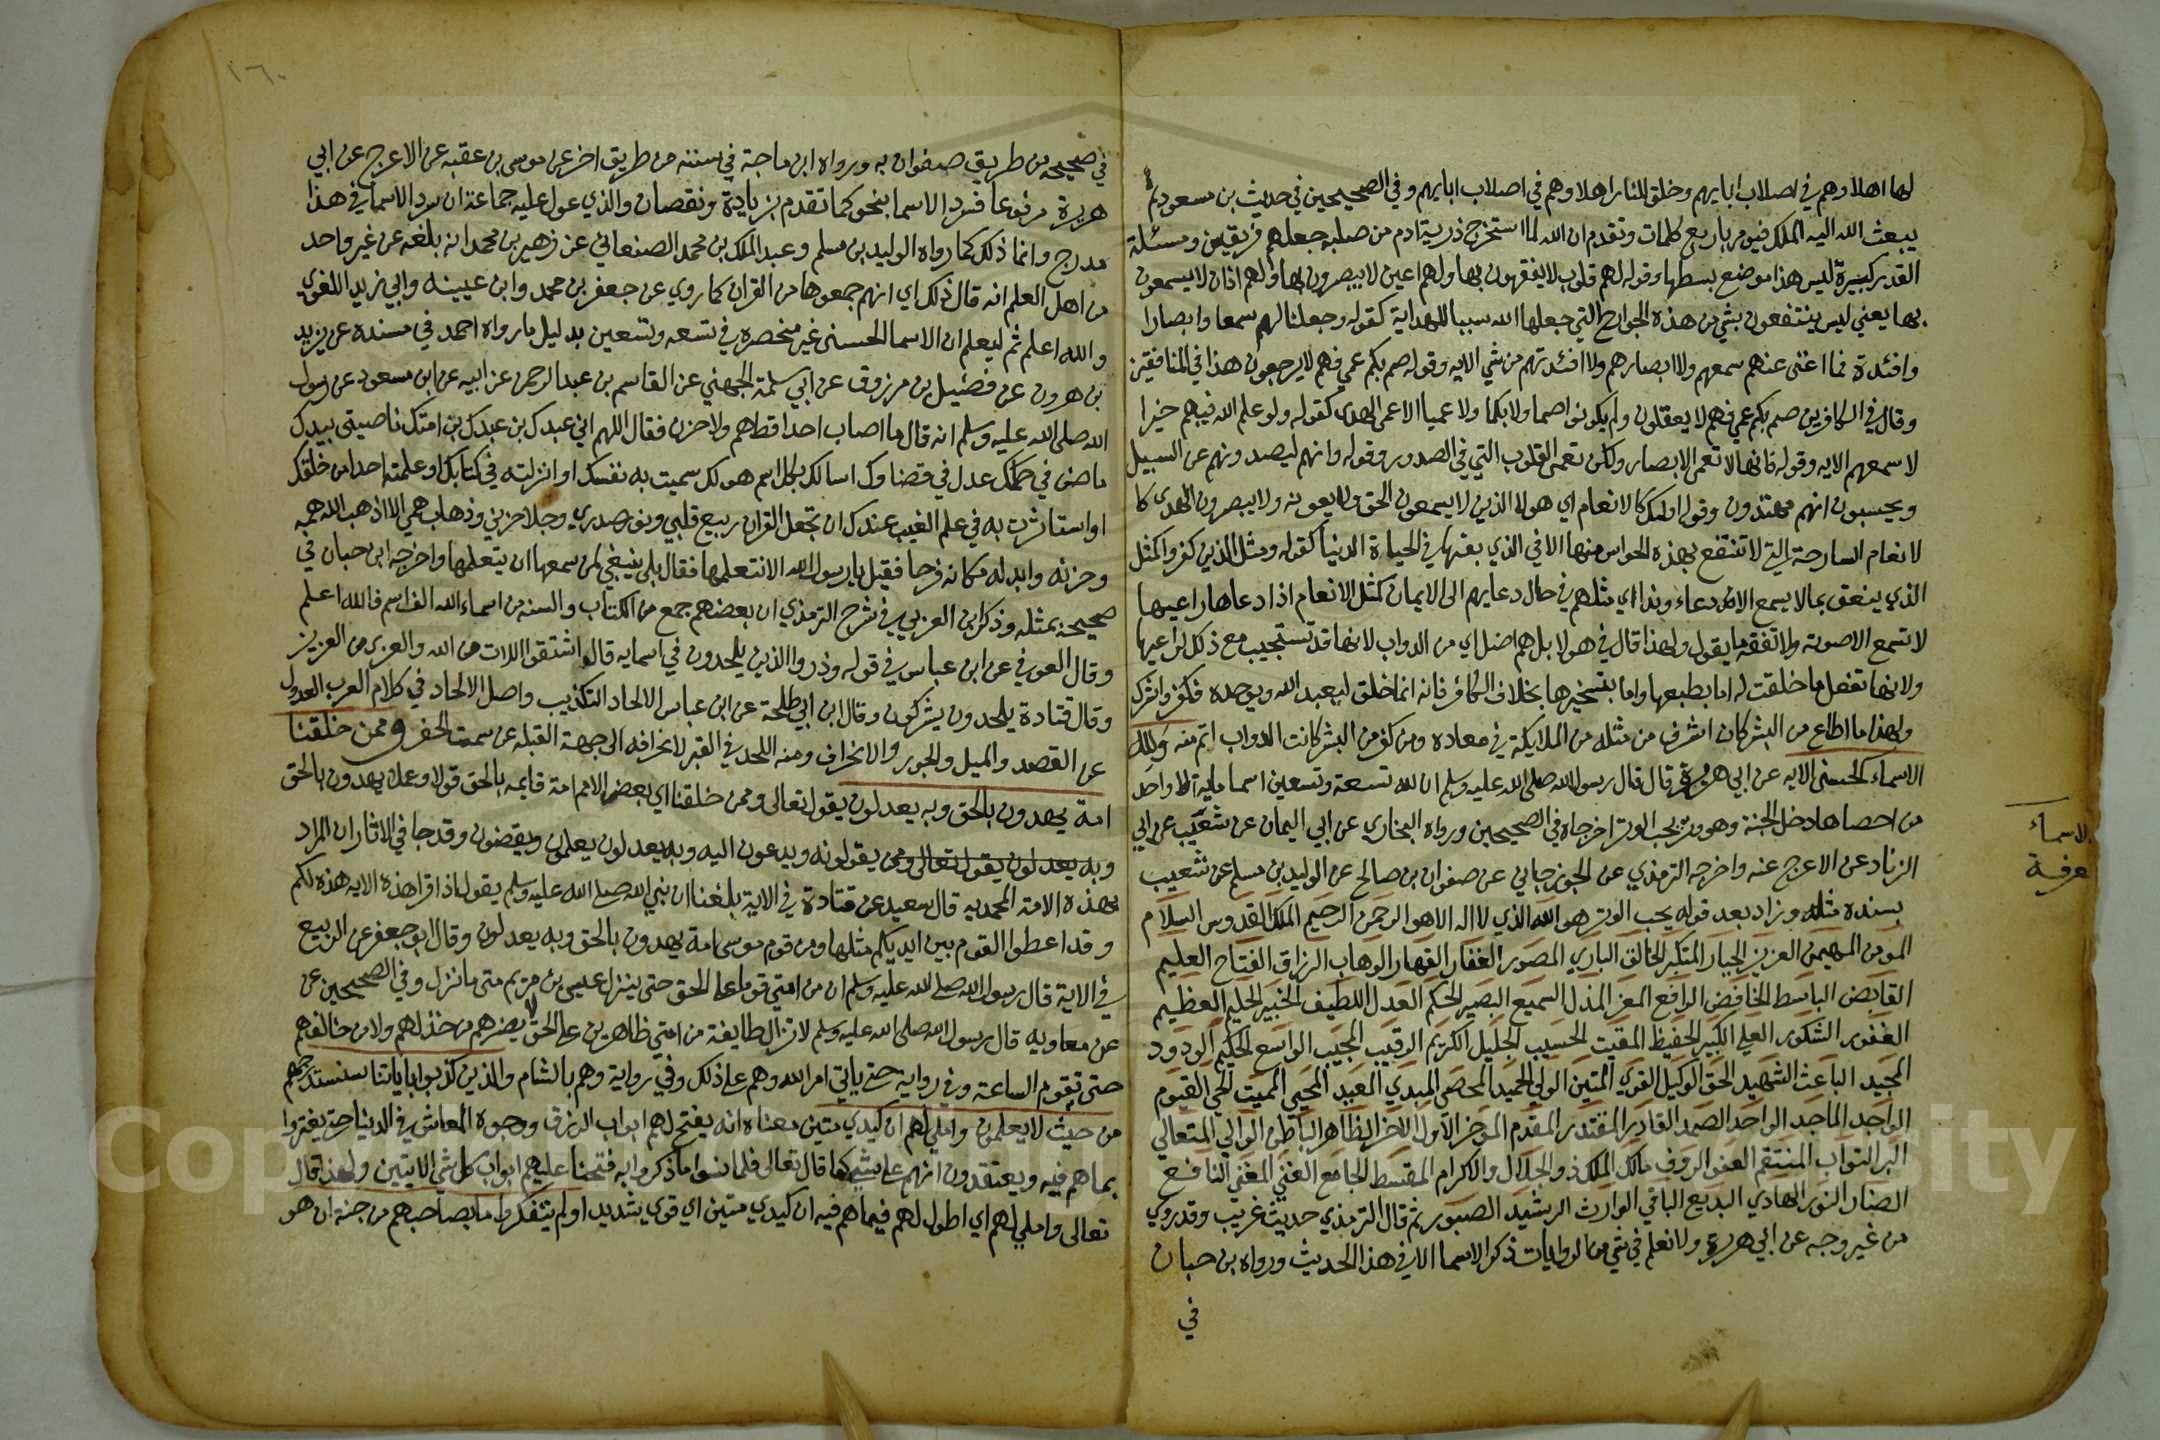 لها اهلا وهم في اصلاب ابايهم وخلق للنار اهلا وهم في اصلاب ابايهم وفي الصحيحين في حديث بن مسعود ثم
يبعث الله اليه الملك فيومر باربع كلمات وتقدم ان الله لما استخرج ذرية ادم من صلبه جعلهم فريقين ومسئلة
القدر كبيرة ليس هذا موضع بسطها وقوله لهم قلوب لا يفقهون بها ولهم اعين لا يبصرون بها ولهم اذان لا يسمعون
بها يعني ليس ينتفعون بشي من هذه الجوارح التي جعلها الله سببا للهداية كقوله وجعلنا لهم سمعا وابصارا
وافئدة فما اغنى عنهم سمعهم ولا ابصارهم ولا افئدتهم من شي الايه وقوله صم بكم عمي فهم لا يرجعون هذا في المنافقين
وقال في الكافرين صم بكم عمي فهم لا يعقلون ولم يكونوا صما ولا بكما ولا عميا الا عن الهدى كقوله ولو علم الله فيهم خيرا
لاسمعهم الايه وقوله فانها لا تعمى الابصار ولكن تعمى القلوب التي في الصدور وقوله وانهم ليصدونهم عن السبيل
ويحسبون انهم مهتدون وقوله اوليك كالانعام اي هولا الذين لا يسمعون الحق ولا يعونه ولا يبصرون الهدى كا
لانعام السارحة التي لا تنتفع بهذه الحواس منها الا في الذي يقيتها في الحياة الدنيا كقوله ومثل الذين كفروا كمثل
الذي ينعق بما لا يسمع الا دعاء وندا اي مثلهم في حال دعايهم الى الايمان كمثل الانعام اذا دعاها راعيها
لا تسمع الا صوته ولا تفقه ما يقول ولهذا قال في هولا بل هم اضل اي من الدواب لانها قد تستجيب مع ذلك لراعيها
ولانها تفعل ما خلقت له اما بطبعها واما بتسخيرها بخلاف الكافر فانه انما خلق ليعبد الله ويوحده فكفر واشرك
ولهذا ما اطاع من البشر كان اشرف من مثله من الملايكة في معاده ومن كفر من البشر كانت الدواب اتم منه ولله
الاسماء الحسنى الايه عن ابي هريرة قال قال رسول الله صلى الله عليه وسلم ان لله تسعة وتسعين اسما ماية الا واحد
من احصاها دخل الجنة وهو وتر يحب الوتر اخرجاه في الصحيحين ورواه البخاري عن ابي اليمان عن شعيب عن ابي
الزناد عن الاعرج عنه واخرجه الترمذي عن الجوزجاني عن صفوان بن صالح عن الوليد بن مسلم عن شعيب
بسنده مثله وزاد بعد قوله يحب الوتر هو الله الذي لا اله الا هو الرحمن الرحيم الملك القدوس السلام
المومن المهيمن العزيز الجبار المتكبر الخالق الباري المصور الغفار القهار الوهاب الرزاق الفتاح العليم
القابض الباسط الخافض الرافع المعز المذل السميع البصير الحكم العدل اللطيف الخبير الحليم العظيم
الغفور الشكور العلي الكبير الحفيظ المقيت الحسيب الجليل الكريم الرقيب المجيب الواسع الحكيم الودود
المجيد الباعث الشهيد الحق الوكيل القوي المتين الولي الحميد المحصي المبدي المعيد المحيي المميت الحي القيوم
الواجد الماجد الواحد الصمد القادر المقتدر المقدم الموخر الاول الاخر الظاهر الباطن الوالي المتعالي
البر التواب المنتقم العفو الروف مالك الملك ذو الجلال والاكرام المقسط الجامع الغني المغني النافع
الضار النور الهادي البديع الباقي الوارث الرشيد الصبور ثم قال الترمذي حديث غريب وقد روي
من غير وجه عن ابي هريرة ولا نعلم في شي من الروايات ذكر الاسما الا في هذا الحديث ورواه بن حبان
في
الاسماء
معرفة
في صحيحه من طريق صفوان به ورواه ابن ماجة في سننه من طريق اخر عن موسى بن عقبه عن الاعرج عن ابي
هريرة مرفوعا فسرد الاسما بنحو كما تقدم بزيادة ونقصان والذي عول عليه جماعة ان سرد الاسما في هذا
مدرج وانما ذلك كما رواه الوليد بن مسلم وعبد الملك بن محمد الصنعاني عن زهير بن محمد انه بلغه عن غير واحد
من اهل العلم انه قال ذلك اي انهم جمعوها من القران كما روي عن جعفر بن محمد وابن عيينه وابي زيد اللغوي
والله اعلم ثم ليعلم ان الاسما الحسنى غير منحصره في تسعه وتسعين بدليل ما رواه احمد في مسنده عن يزيد
بن هرون عن فضيل بن مرزوق عن ابي سلمة الجهني عن القاسم بن عبد الرحمن عن ابيه عن ابن مسعود عن رسول
الله صلى الله عليه وسلم انه قال ما اصاب احدا قط هم ولا حزن فقال اللهم اني عبدك بن عبدك بن امتك ناصيتي بيدك
ماض في حكمك عدل في قضاوك اسالك بكل اسم هو لك سميت به نفسك او انزلته في كتابك او علمته احدا من خلقك
او استاثرت به في علم الغيب عندك ان تجعل القران ربيع قلبي ونور صدري وجلا حزني وذهاب همي الا اذهب الله همه
وحزنه وابدله مكانه فرحا فقيل يا رسول الله الا نتعلمها فقال بلى ينبغي لمن سمعها ان يتعلمها واخرجه ابن حبان في
صحيحه بمثله وذكر ابن العربي في شرح الترمذي ان بعضهم جمع من الكتاب والسنه من اسماء الله الف اسم فالله اعلم
وقال العوفي عن ابن عباس في قوله وذروا الذين يلحدون في اسمايه قال اشتقوا اللات من الله والعزى من العزيز
وقال قتادة يلحدون يشركون وقال ابن ابي طلحة عن ابن عباس الالحاد التكذيب واصل الالحاد في كلام العرب العدول
عن القصد والميل والجور والانحراف ومنه اللحد في القبر لانحرافه الى جهة القبله عن سمت الحفر وممن خلقنا
امة يهدون بالحق وبه يعدلون يقول تعالى وممن خلقنا اي بعض الامم امة قايمه بالحق قولا وعملا يهدون بالحق
وبه يعدلون يقول تعالى وممن يقولونه ويدعون اليه وبه يعدلون يعلمون ويقضون وقد جا في الاثار ان المراد
بهذه الامة المحمديه قال سعيد عن قتادة في الاية بلغنا ان نبي الله صلى الله عليه وسلم يقول اذا قرا هذه الايه هذه لكم
وقد اعطوا القوم بين ايديكم مثلها ومن قوم موسى امة يهدون بالحق وبه يعدلون وقال ابو جعفر عن الربيع
في الاية قال رسول الله صلى الله عليه وسلم ان من امتي قوما على الحق حتى ينزل عيسى بن مريم متى ما نزل وفي الصحيحين عن
عن معاويه قال رسول الله صلى الله عليه وسلم لا تزال طايفة من امتي ظاهرين على الحق لا يضرهم من خذلهم ولا من خالفهم
حتى تقوم الساعة وفي رواية حتى ياتي امر الله وهم على ذلك وفي رواية وهم بالشام والذين كذبوا باياتنا سنستدرجهم
من حيث لا يعلمون واملي لهم ان كيدي متين معناه انه يفتح لهم ابواب الرزق ووجوة المعاش في الدنيا حتى يغتروا
بما هم فيه ويعتقدون انهم على شي كما قال تعالى فلما نسوا ما ذكروا به فتحنا عليهم ابواب كل شي الايتين ولهذا قال
تعالى واملي لهم اي اطول لهم فيما هم فيه ان كيدي متين اي قوي شديد اولم يتفكروا ما بصاحبهم من جنة ان هو